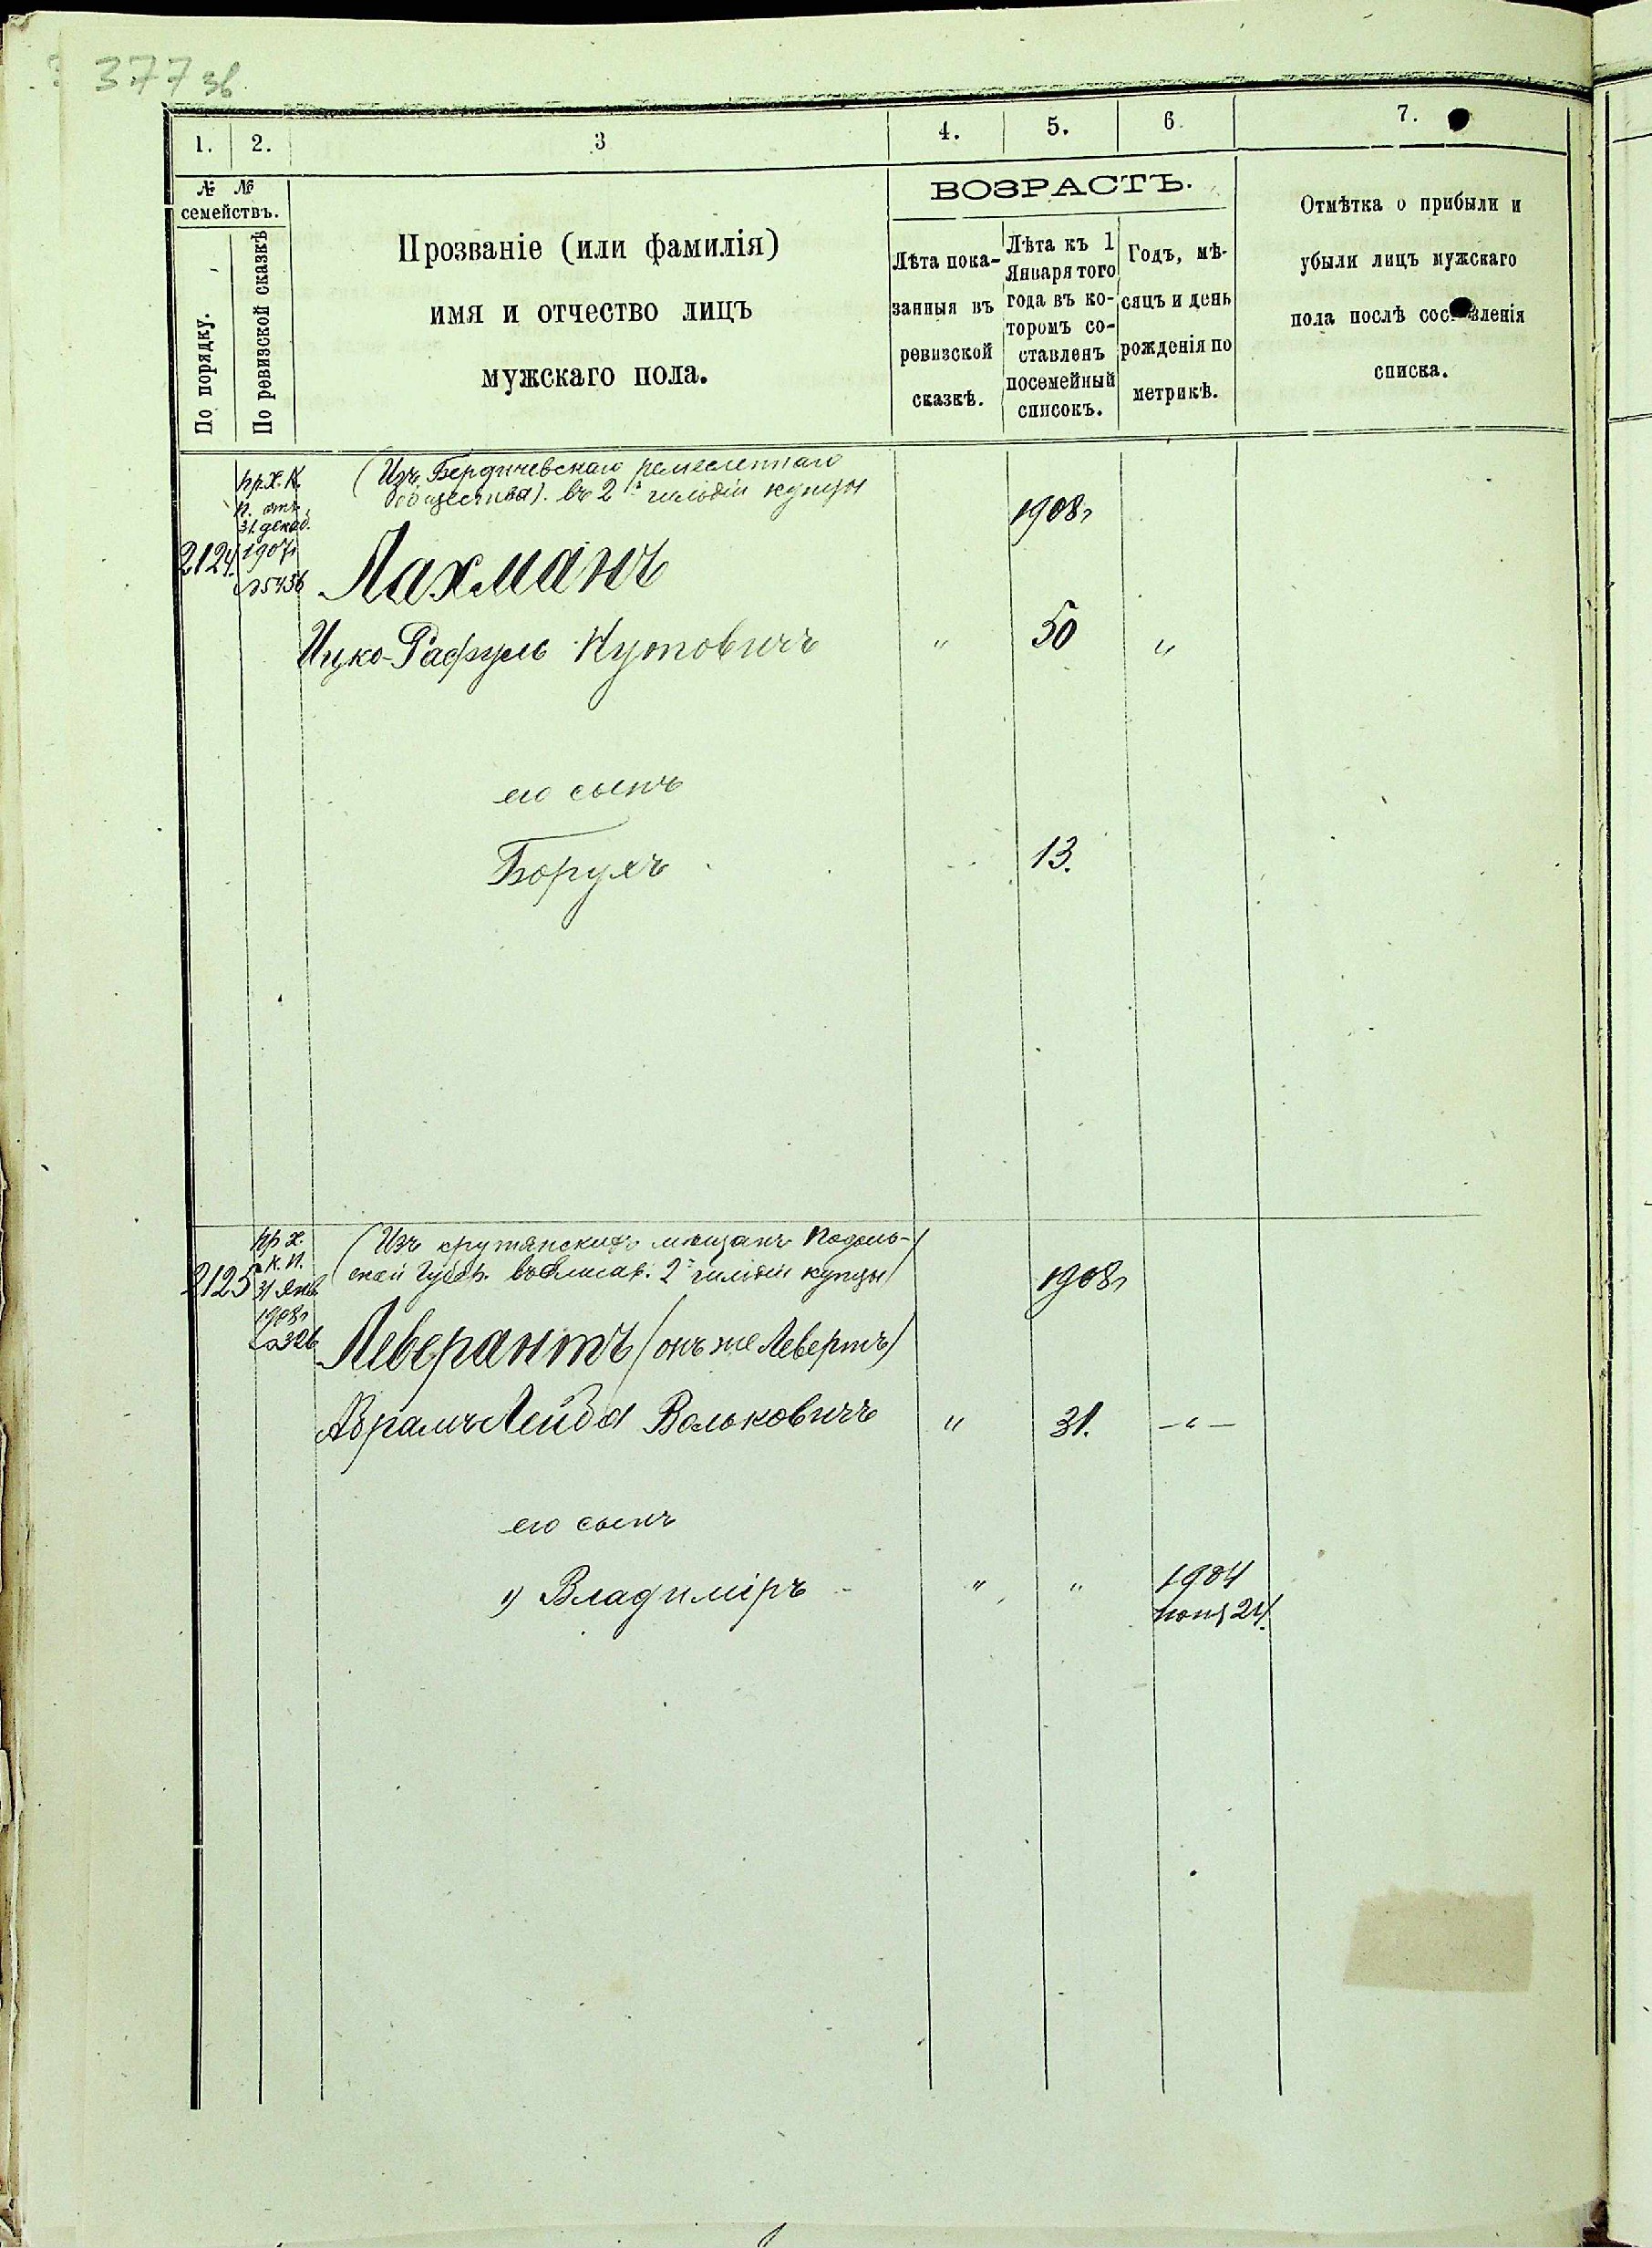 377 зв
1. 2. 3 4. 5. 6. 7.
№ №
семействъ.
По порядку.
По ревизской сказкѣ
Прозваніе (или фамилія)
имя и отчество лицъ
мужскаго пола.
ВОЗРАСТЪ.
Лѣта пока-
занныя въ
ревизской
сказкѣ.
Лѣта къ 1
Января того
года въ ко-
торомъ со-
ставленъ
посемейный
списокъ.
Годъ, мѣ-
сяцъ и день
рожденія по
метрикѣ.
Отмѣтка о прибыли и
убыли лицъ мужскаго
пола послѣ составленія
списка.
пр. Х. К.
П. отъ
31 декаб.
1907г
№5436
2124.
(Изъ Бердичевскаго ремесленнаго
общества). въ 2й гильдіи купцы
1908г
Лахманъ
Ицко-Рафуль Нутовичъ " 50 "
его сынъ
Борухъ 13.
пр Х.
К. П.
31 Янв.
1908г
№306
2125
(Изъ крутянскихъ мѣщанъ Подоль-
ской Губер. 2й гильдіи купцы)
1908г
Леверантъ (онъ же Левертъ)
Аврамъ Лейба Вольковичъ " 31. — " —
его сынъ
1) Владиміръ - " " 1904
24.